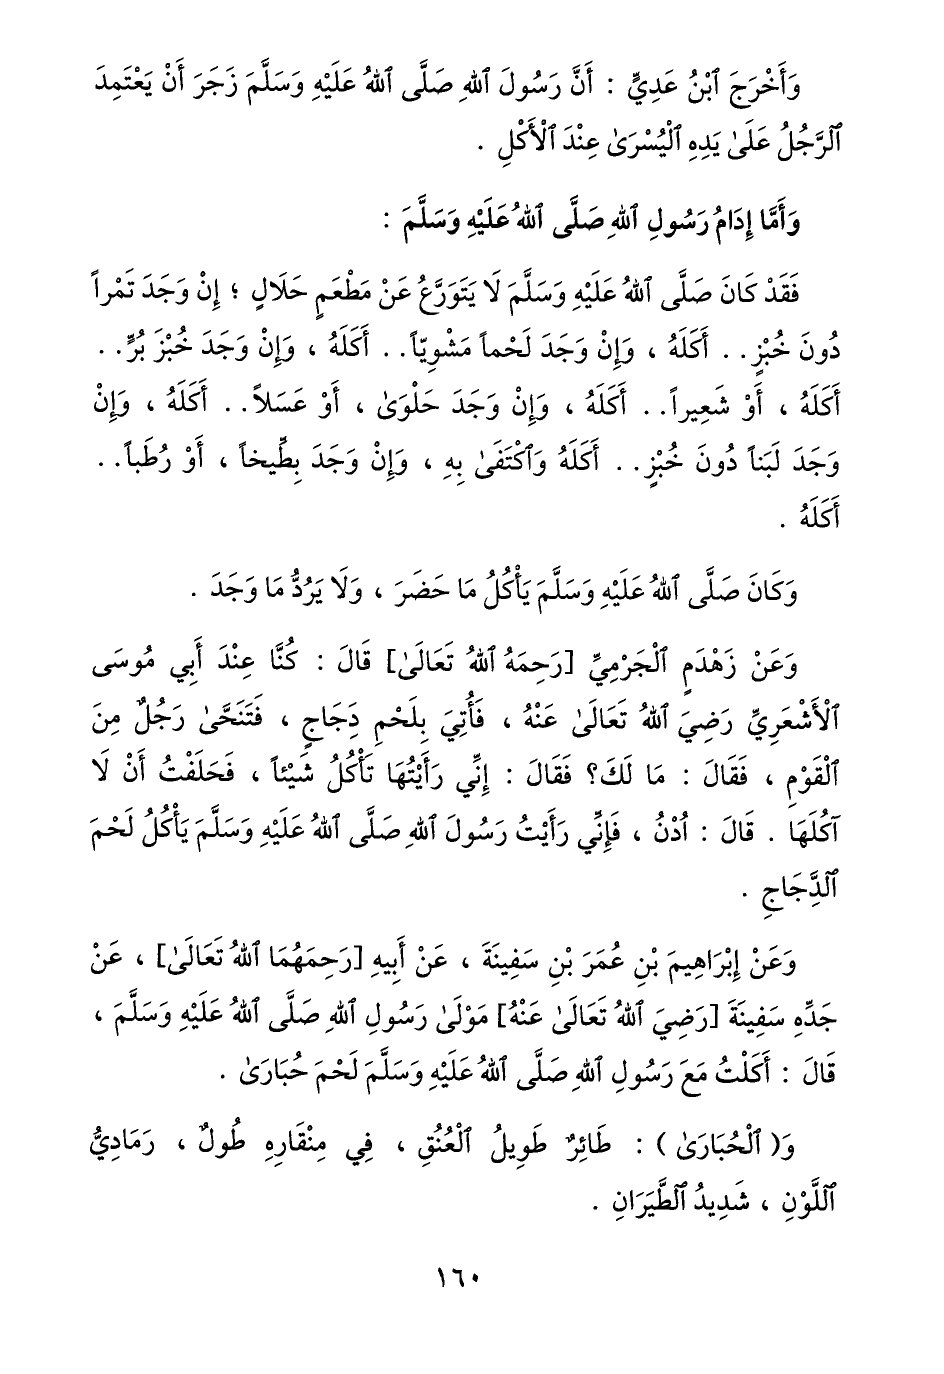 وَأَخْرَجَ ٱبْنُ عَدِيٍّ : أَنَّ رَسُولَ ٱللهِ صَلَّى ٱللهُ عَلَيْهِ وَسَلَّمَ زَجَرَ أَنْ يَعْتَمِدَ
ٱلرَّجُلُ عَلَىٰ يَدِهِ ٱلْيُسْرَىٰ عِنْدَ ٱلْأَكْلِ .
وَأَمَّا إِدَامُ رَسُولِ ٱللهِ صَلَّى ٱللهُ عَلَيْهِ وَسَلَّمَ :
فَقَدْ كَانَ صَلَّى ٱللهُ عَلَيْهِ وَسَلَّمَ لَا يَتَوَرَّعُ عَنْ مَطْعَمٍ حَلَالٍ ؛ إِنْ وَجَدَ تَمْراً
دُونَ خُبْزٍ . . أَكَلَهُ ، وَإِنْ وَجَدَ لَحْماً مَشْوِيّاً . . أَكَلَهُ ، وَإِنْ وَجَدَ خُبْزَ بُرٍّ . .
أَكَلَهُ ، أَوْ شَعِيراً . . أَكَلَهُ ، وَإِنْ وَجَدَ حَلْوَىٰ ، أَوْ عَسَلاً . . أَكَلَهُ ، وَإِنْ
وَجَدَ لَبَناً دُونَ خُبْزٍ . . أَكَلَهُ وَٱكْتَفَىٰ بِهِ ، وَإِنْ وَجَدَ بِطِّيخاً ، أَوْ رُطَباً . .
أَكَلَهُ .
وَكَانَ صَلَّى ٱللهُ عَلَيْهِ وَسَلَّمَ يَأْكُلُ مَا حَضَرَ ، وَلَا يَرُدُّ مَا وَجَدَ .
وَعَنْ زَهْدَمٍ ٱلْجَرْمِيِّ [رَحِمَهُ ٱللهُ تَعَالَىٰ] قَالَ : كُنَّا عِنْدَ أَبِي مُوسَى
ٱلْأَشْعَرِيِّ رَضِيَ ٱللهُ تَعَالَىٰ عَنْهُ ، فَأُتِيَ بِلَحْمِ دَجَاجٍ ، فَتَنَحَّىٰ رَجُلٌ مِنَ
ٱلْقَوْمِ ، فَقَالَ : مَا لَكَ؟ فَقَالَ : إِنِّي رَأَيْتُهَا تَأْكُلُ شَيْئاً ، فَحَلَفْتُ أَنْ لَا
آكُلَهَا . قَالَ : اُدْنُ ، فَإِنِّي رَأَيْتُ رَسُولَ ٱللهِ صَلَّى ٱللهُ عَلَيْهِ وَسَلَّمَ يَأْكُلُ لَحْمَ
ٱلدَّجَاجِ .
وَعَنْ إِبْرَاهِيمَ بْنِ عُمَرَ بْنِ سَفِينَةَ ، عَنْ أَبِيهِ [رَحِمَهُمَا ٱللهُ تَعَالَىٰ] ، عَنْ
جَدِّهِ سَفِينَةَ [رَضِيَ ٱللهُ تَعَالَىٰ عَنْهُ] مَوْلَىٰ رَسُولِ ٱللهِ صَلَّى ٱللهُ عَلَيْهِ وَسَلَّمَ ،
قَالَ : أَكَلْتُ مَعَ رَسُولِ ٱللهِ صَلَّى ٱللهُ عَلَيْهِ وَسَلَّمَ لَحْمَ حُبَارَىٰ .
وَ( ٱلْحُبَارَىٰ ) : طَائِرٌ طَوِيلُ ٱلْعُنُقِ ، فِي مِنْقَارِهِ طُولٌ ، رَمَادِيُّ
ٱللَّوْنِ ، شَدِيدُ ٱلطَّيَرَانِ .
١٦٠